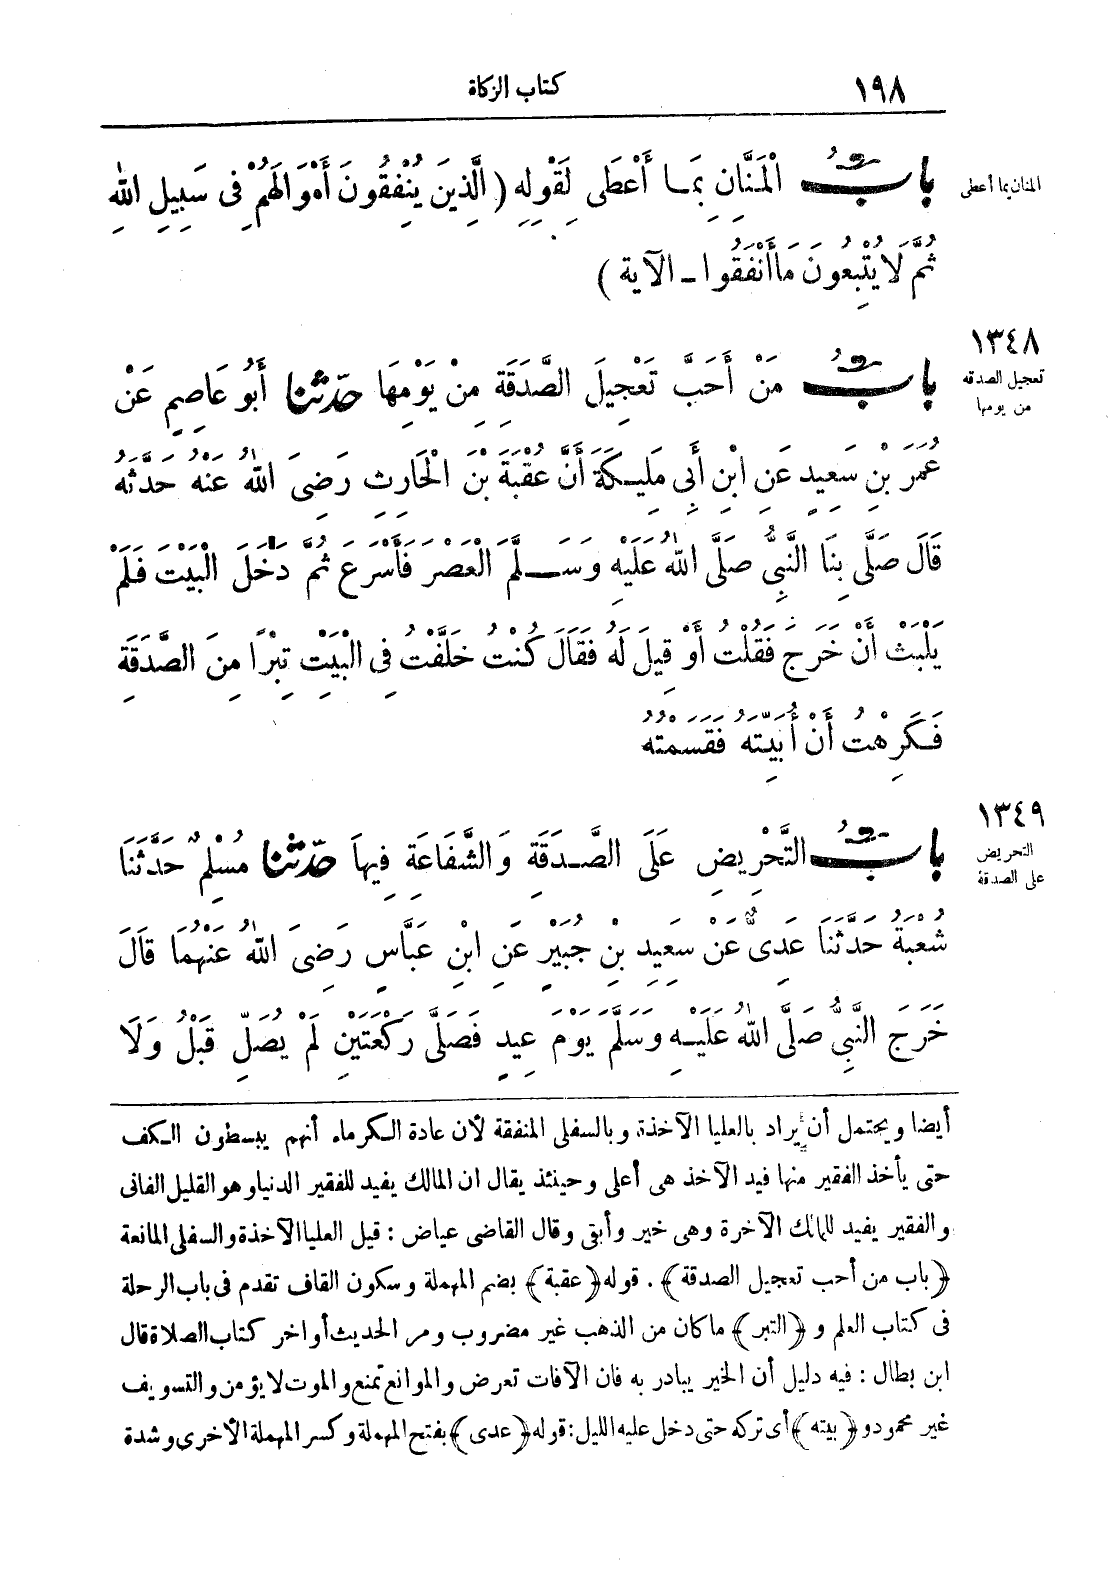 ١٩٨
كتاب الزكاة
بابُ الْمَنَّانِ بِمَا أَعْطَى لِقَوْلِهِ ( الَّذِينَ يُنْفِقُونَ أَمْوَالَهُمْ فِى سَبِيلِ اللهِ
المنان بما أعطى
ثُمَّ لَا يُتْبِعُونَ مَا أَنْفَقُوا ــ الآية )
١٣٤٨
تعجيل الصدقه
من يومها
بابُ مَنْ أَحَبَّ تَعْجِيلَ الصَّدَقَةِ مِنْ يَوْمِهَا حدّثنا أَبُو عَاصِمٍ عَنْ
عُمَرَ بْنِ سَعِيدٍ عَنِ ابْنِ أَبِى مُلَيْكَةَ أَنَّ عُقْبَةَ بْنَ الْحَارِثِ رَضِىَ اللهُ عَنْهُ حَدَّثَهُ
قَالَ صَلَّى بِنَا النَّبِىُّ صَلَّى اللهُ عَلَيْهِ وَسَلَّمَ الْعَصْرَ فَأَسْرَعَ ثُمَّ دَخَلَ الْبَيْتَ فَلَمْ
يَلْبَثْ أَنْ خَرَجَ فَقُلْتُ أَوْ قِيلَ لَهُ فَقَالَ كُنْتُ خَلَّفْتُ فِى الْبَيْتِ تِبْرًا مِنَ الصَّدَقَةِ
فَكَرِهْتُ أَنْ أُبَيِّتَهُ فَقَسَمْتُهُ
١٣٤٩
التحريض
على الصدقة
بابُ التَّحْرِيضِ عَلَى الصَّدَقَةِ وَالشَّفَاعَةِ فِيهَا حدّثنا مُسْلِمٌ حَدَّثَنَا
شُعْبَةُ حَدَّثَنَا عَدِىٌّ عَنْ سَعِيدِ بْنِ جُبَيْرٍ عَنِ ابْنِ عَبَّاسٍ رَضِىَ اللهُ عَنْهُمَا قَالَ
خَرَجَ النَّبِىُّ صَلَّى اللهُ عَلَيْهِ وَسَلَّمَ يَوْمَ عِيدٍ فَصَلَّى رَكْعَتَيْنِ لَمْ يُصَلِّ قَبْلُ وَلَا
أيضا ويحتمل أن يراد بالعليا الآخذة وبالسفلى المنفقة لأن عادة الكرماء أنهم يبسطون الكف
حتى يأخذ الفقير منها فيد الآخذ هى أعلى وحينئذ يقال ان المالك يفيد للفقير الدنيا وهو القليل الفانى
والفقير يفيد للمالك الآخرة وهى خير وأبقى وقال القاضى عياض : قيل العليا الآخذة والسفلى المانعة
﴿باب من أحب تعجيل الصدقة﴾ . قوله ﴿عقبة﴾ بضم المهملة وسكون القاف تقدم فى باب الرحلة
فى كتاب العلم و ﴿التبر﴾ ما كان من الذهب غير مضروب ومر الحديث أواخر كتاب الصلاة قال
ابن بطال : فيه دليل أن الخير يبادر به فان الآفات تعرض والموانع تمنع والموت لا يؤمن والتسويف
غير محمود و﴿بيته﴾ أى تركه حتى دخل عليه الليل : قوله ﴿عدى﴾ بفتح المهملة وكسر المهملة الأخرى وشدة